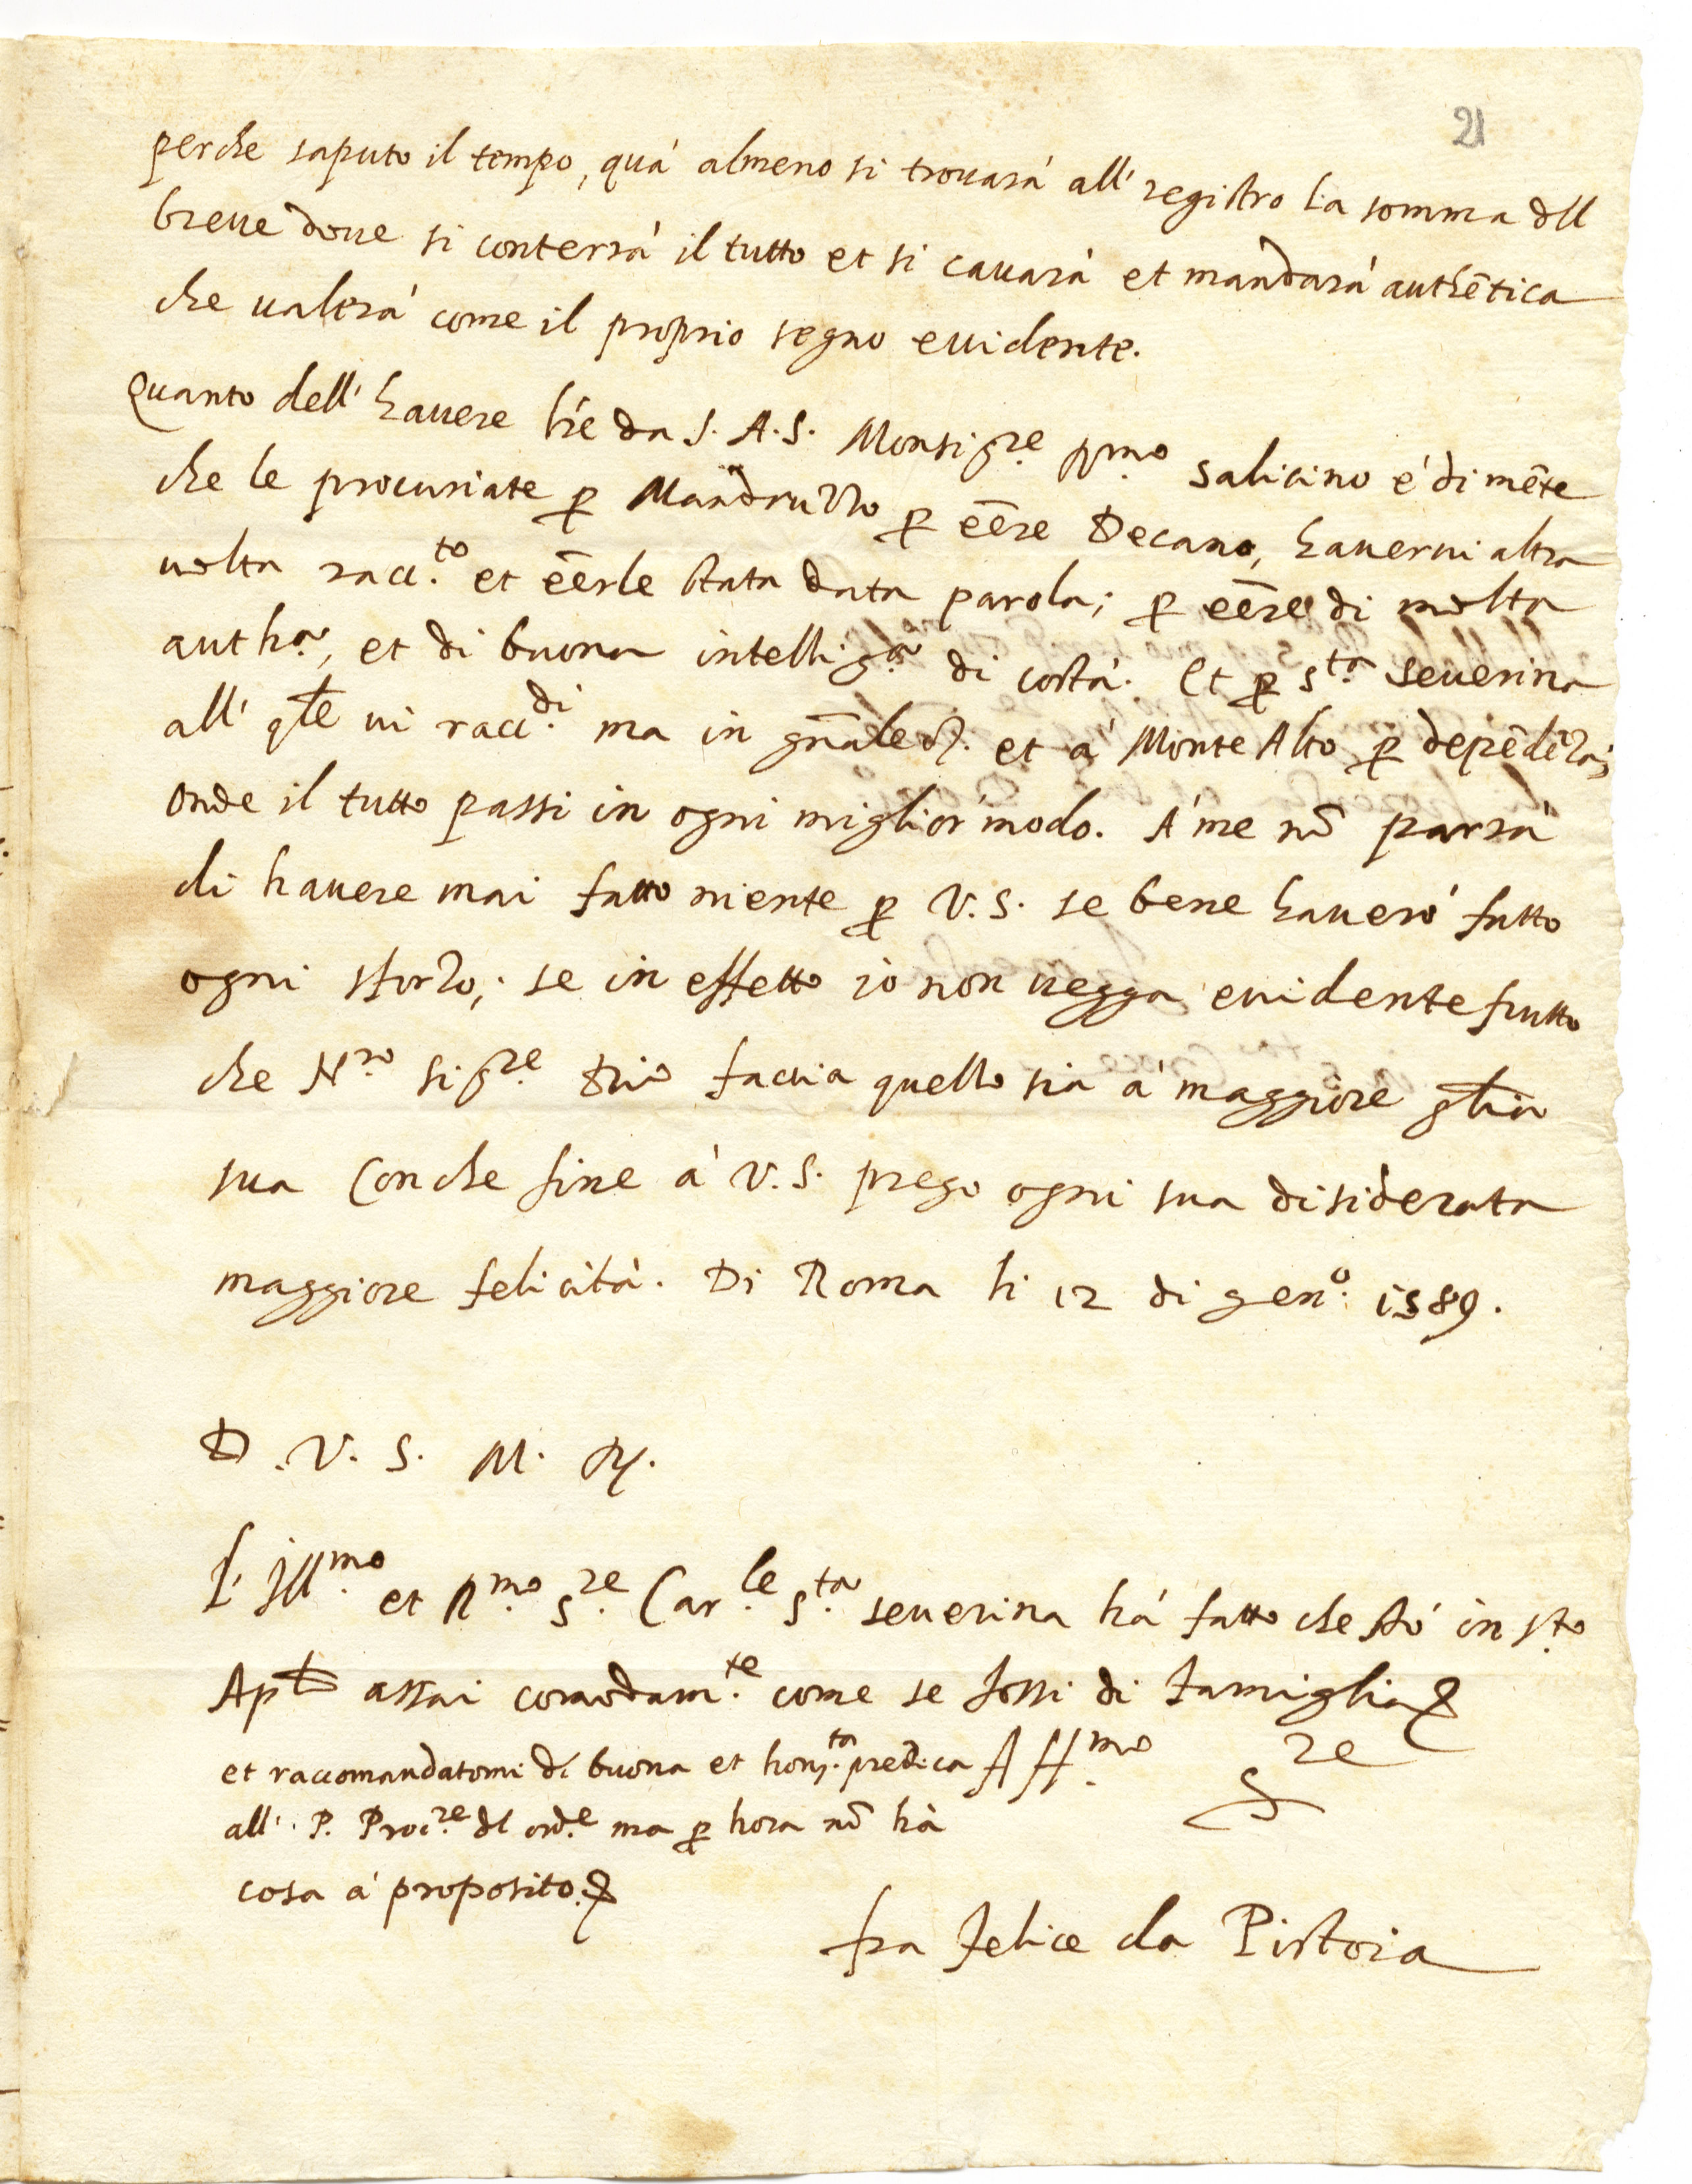 21
perche saputo il tempo, quá almeno si trouará all' registro la somma dll
breue doue si conterrá il tutto et si cauará et mandará authētica
che ualerá come il proprio segno euidente.
Quanto dell' hauere lre da S. A. S. Monsig.re R.mo salicino é di mēte
che le procuriate p Mandruzzo p eēre Decano, hauerui altra
uolta racc.to et eērle stata data parola; p eēre di molta
auth.a, et di buona intellig.a di costá. Et p s.ta seuerina
all' qle ui racc.di ma in gn̄ale et á Monte Alto p depēdēza;
onde il tutto passi in ogni miglior modo. Á me nō parrá
di hauere mai fatto niente p V. S. se bene haueró fatto
ogni sforzo; se in effetto io non uegga euidente frutto
che N.ro Sig.re Dio faccia quello sia á maggiore glia
sua Con che fine á V. S. prego ogni sua disiderata
maggiore felicitá. Di Roma li 12 di gen.o 1589.
D. V. S. M. R.
L' Ill.mo et R.mo S.re Car.le S.ta seuerina há fatto che stó in s.to
Aplo assai comodam.te come se fossi di famiglia
et raccomandatomi di buona et hon.ta predica Aff.mo S.re
all' P. Proc.re dl ord.e ma p hora nō há
cosa á proposito.
fra Felice da Pistoia